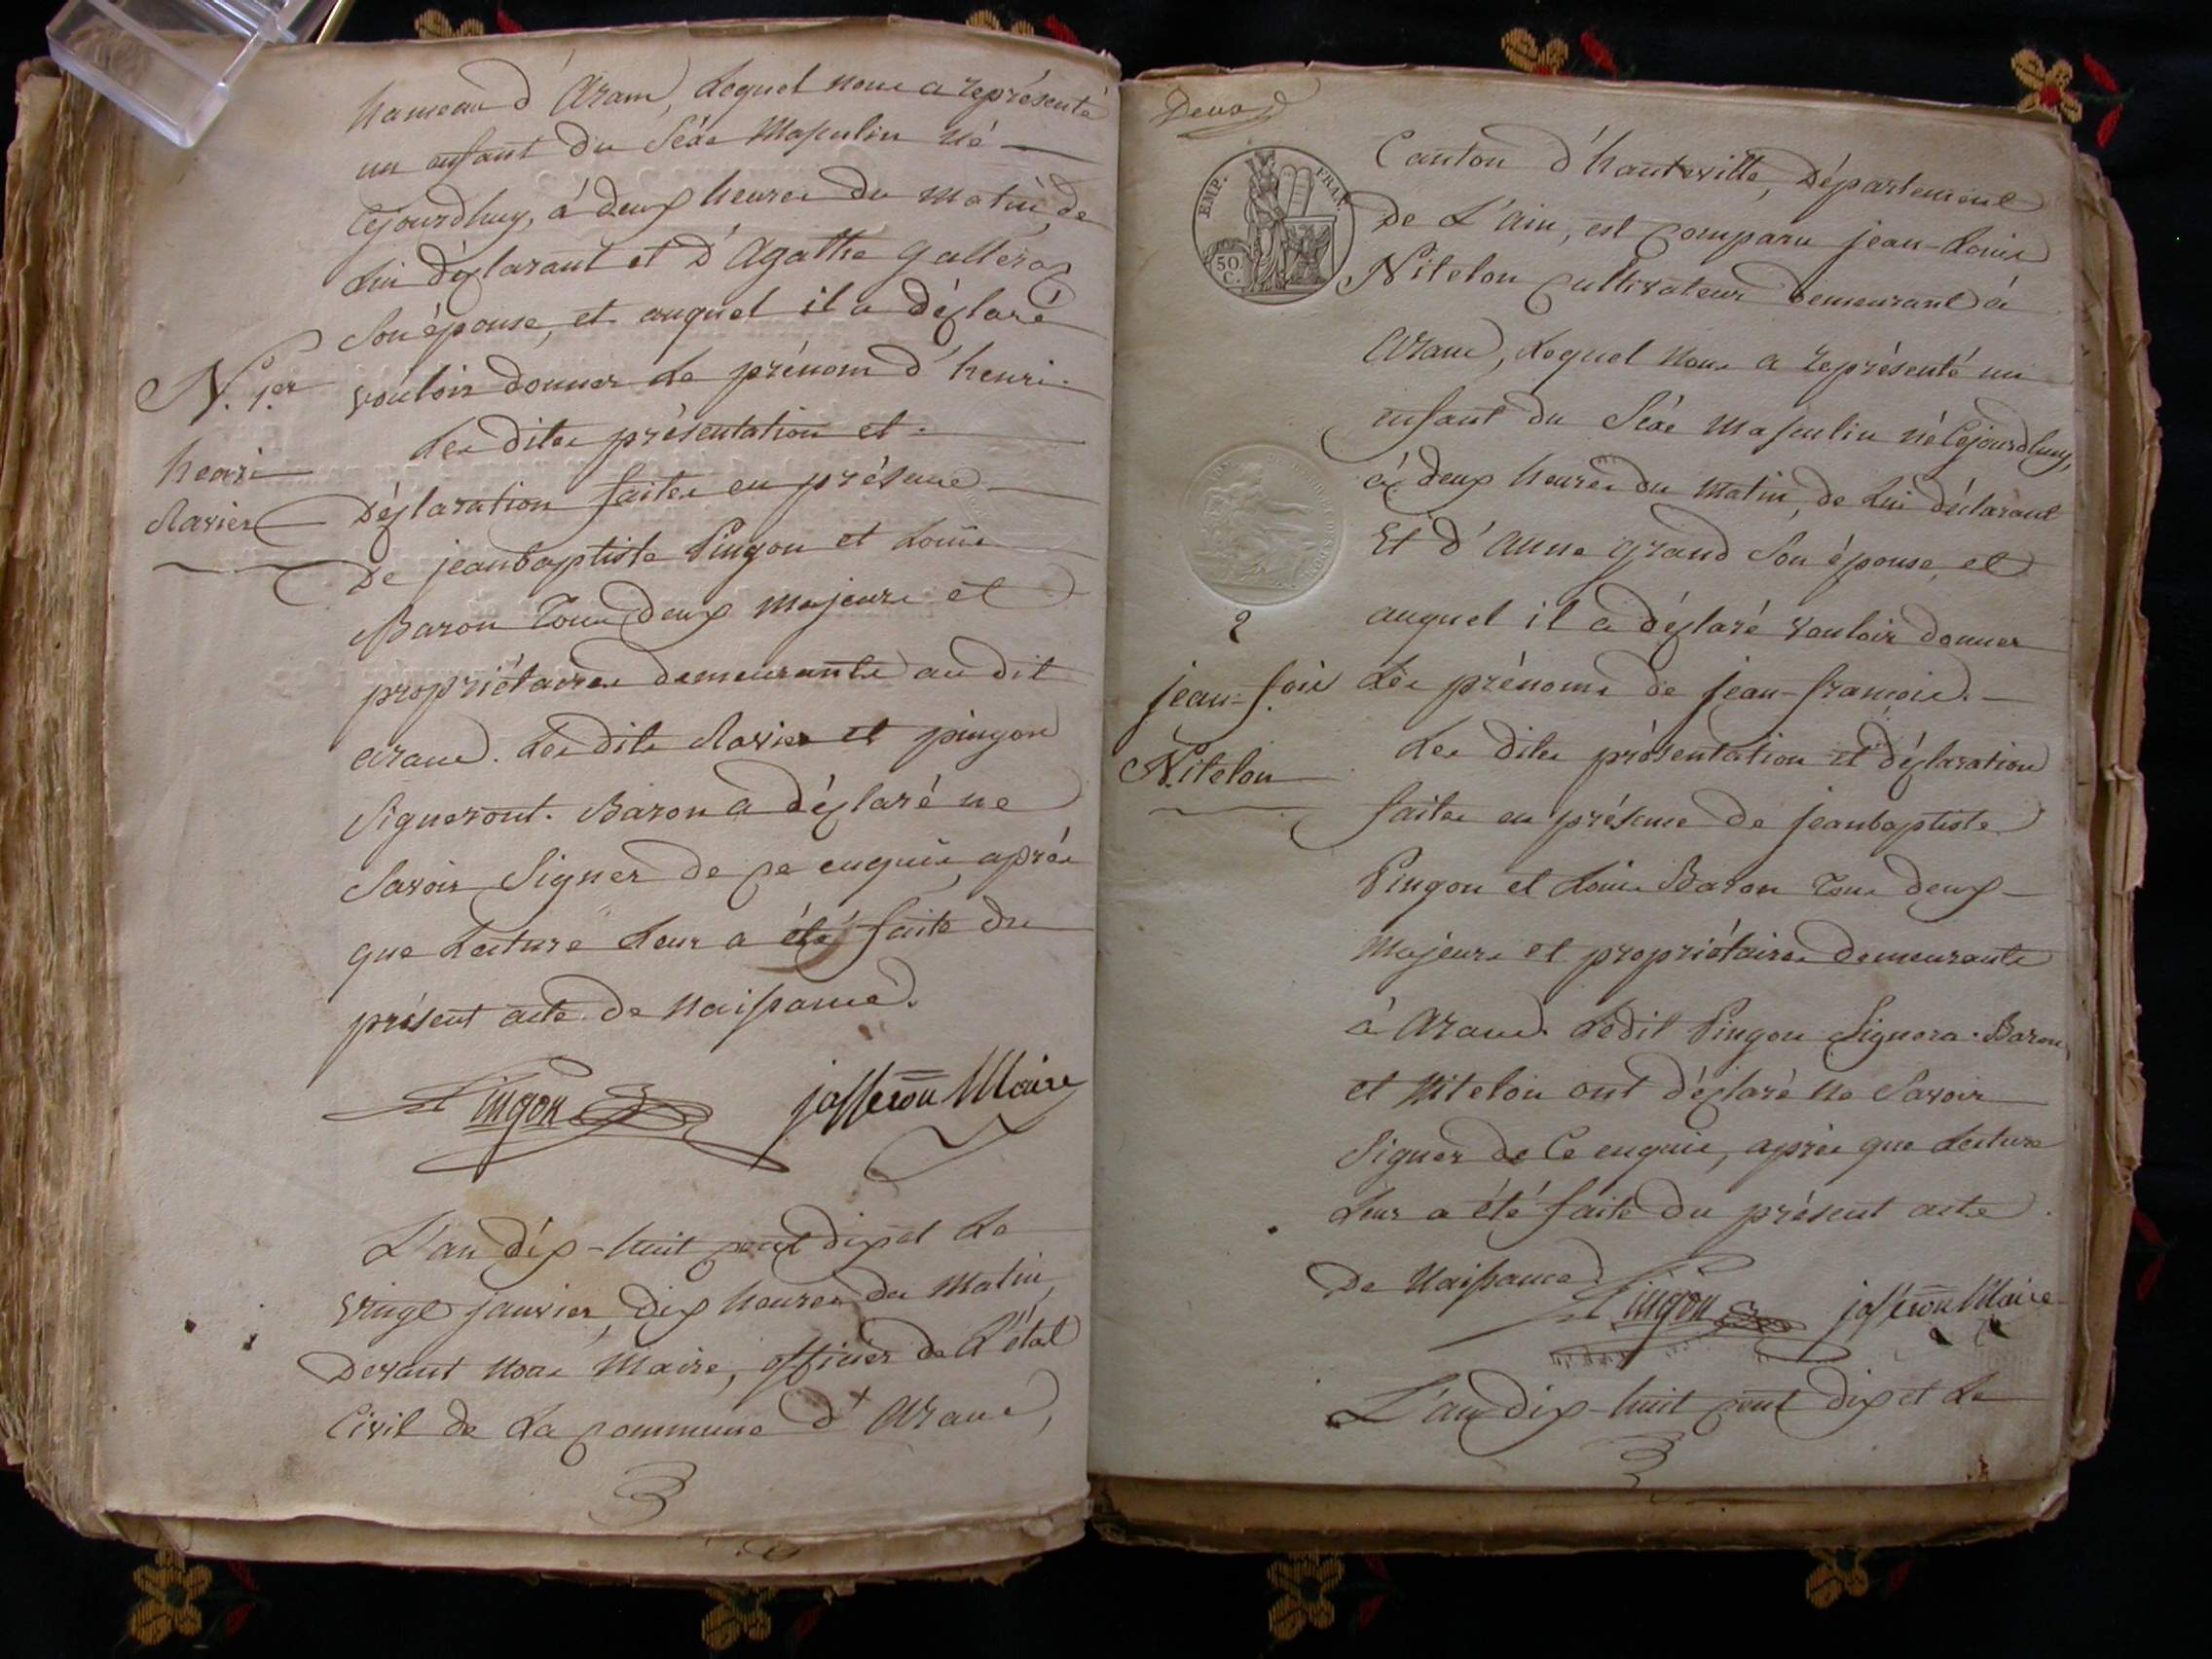 hameau d'Aranc, Lequel nous a représenté
un enfant du Séxe Masculin né
Cejourdhuy, à deux heures du matin, de
Lui déclarant et d'Agathe
Son épouse, et auquel il a déclaré
N.° 1.er
vouloir donner le prénom d'henri.
Les dites présentation et
henri
Savier
Déclaration faites en présence
De jeanbaptiste Pingon et Louis
Baron Tous deux Majeurs et
propriétaires demeurants au dit
Aranc. Les dits Savier et pingon
Signeront. Baron a déclaré ne
Savoir Signer de ce enquis, après
que Lecture Leur a été faite du
présent acte de Naissance.
Pingon
josseron Maire
L'an dix-huit cent dix et Le
vingt janvier, dix heures du Matin,
Devant Nous Maire, officier de L'état
Civil de La commune d'Aranc,
Deux
EMP. FRAN.
50. C.
Canton d'hauteville, Département
De L'Ain, est comparu jean-Louis
Nitelon cultivateur demeurant à
Aranc, Lequel Nous a représenté un
enfant du Séxe Masculin né Cejourdhuy,
à deux heures du Matin, de Lui déclarant
Et d'Anne grand Son épouse, et
2
auquel il a déclaré vouloir donner
jean-f.ois
Nitelon
Les prénoms de jean-françois.
Les dites présentation et déclaration
faites en présence de jeanbaptiste
Pingon et Louis Baron Tous deux
Majeurs et propriétaires demeurants
à Aranc. Ledit Pingon Signera. Baron
et Nitelon ont déclaré ne Savoir
Signer de Ce enquis, après que Lecture
Leur a été faite du présent acte
De Naissance.
Pingon
josseron Maire
L'an dix-huit cent dix et Le